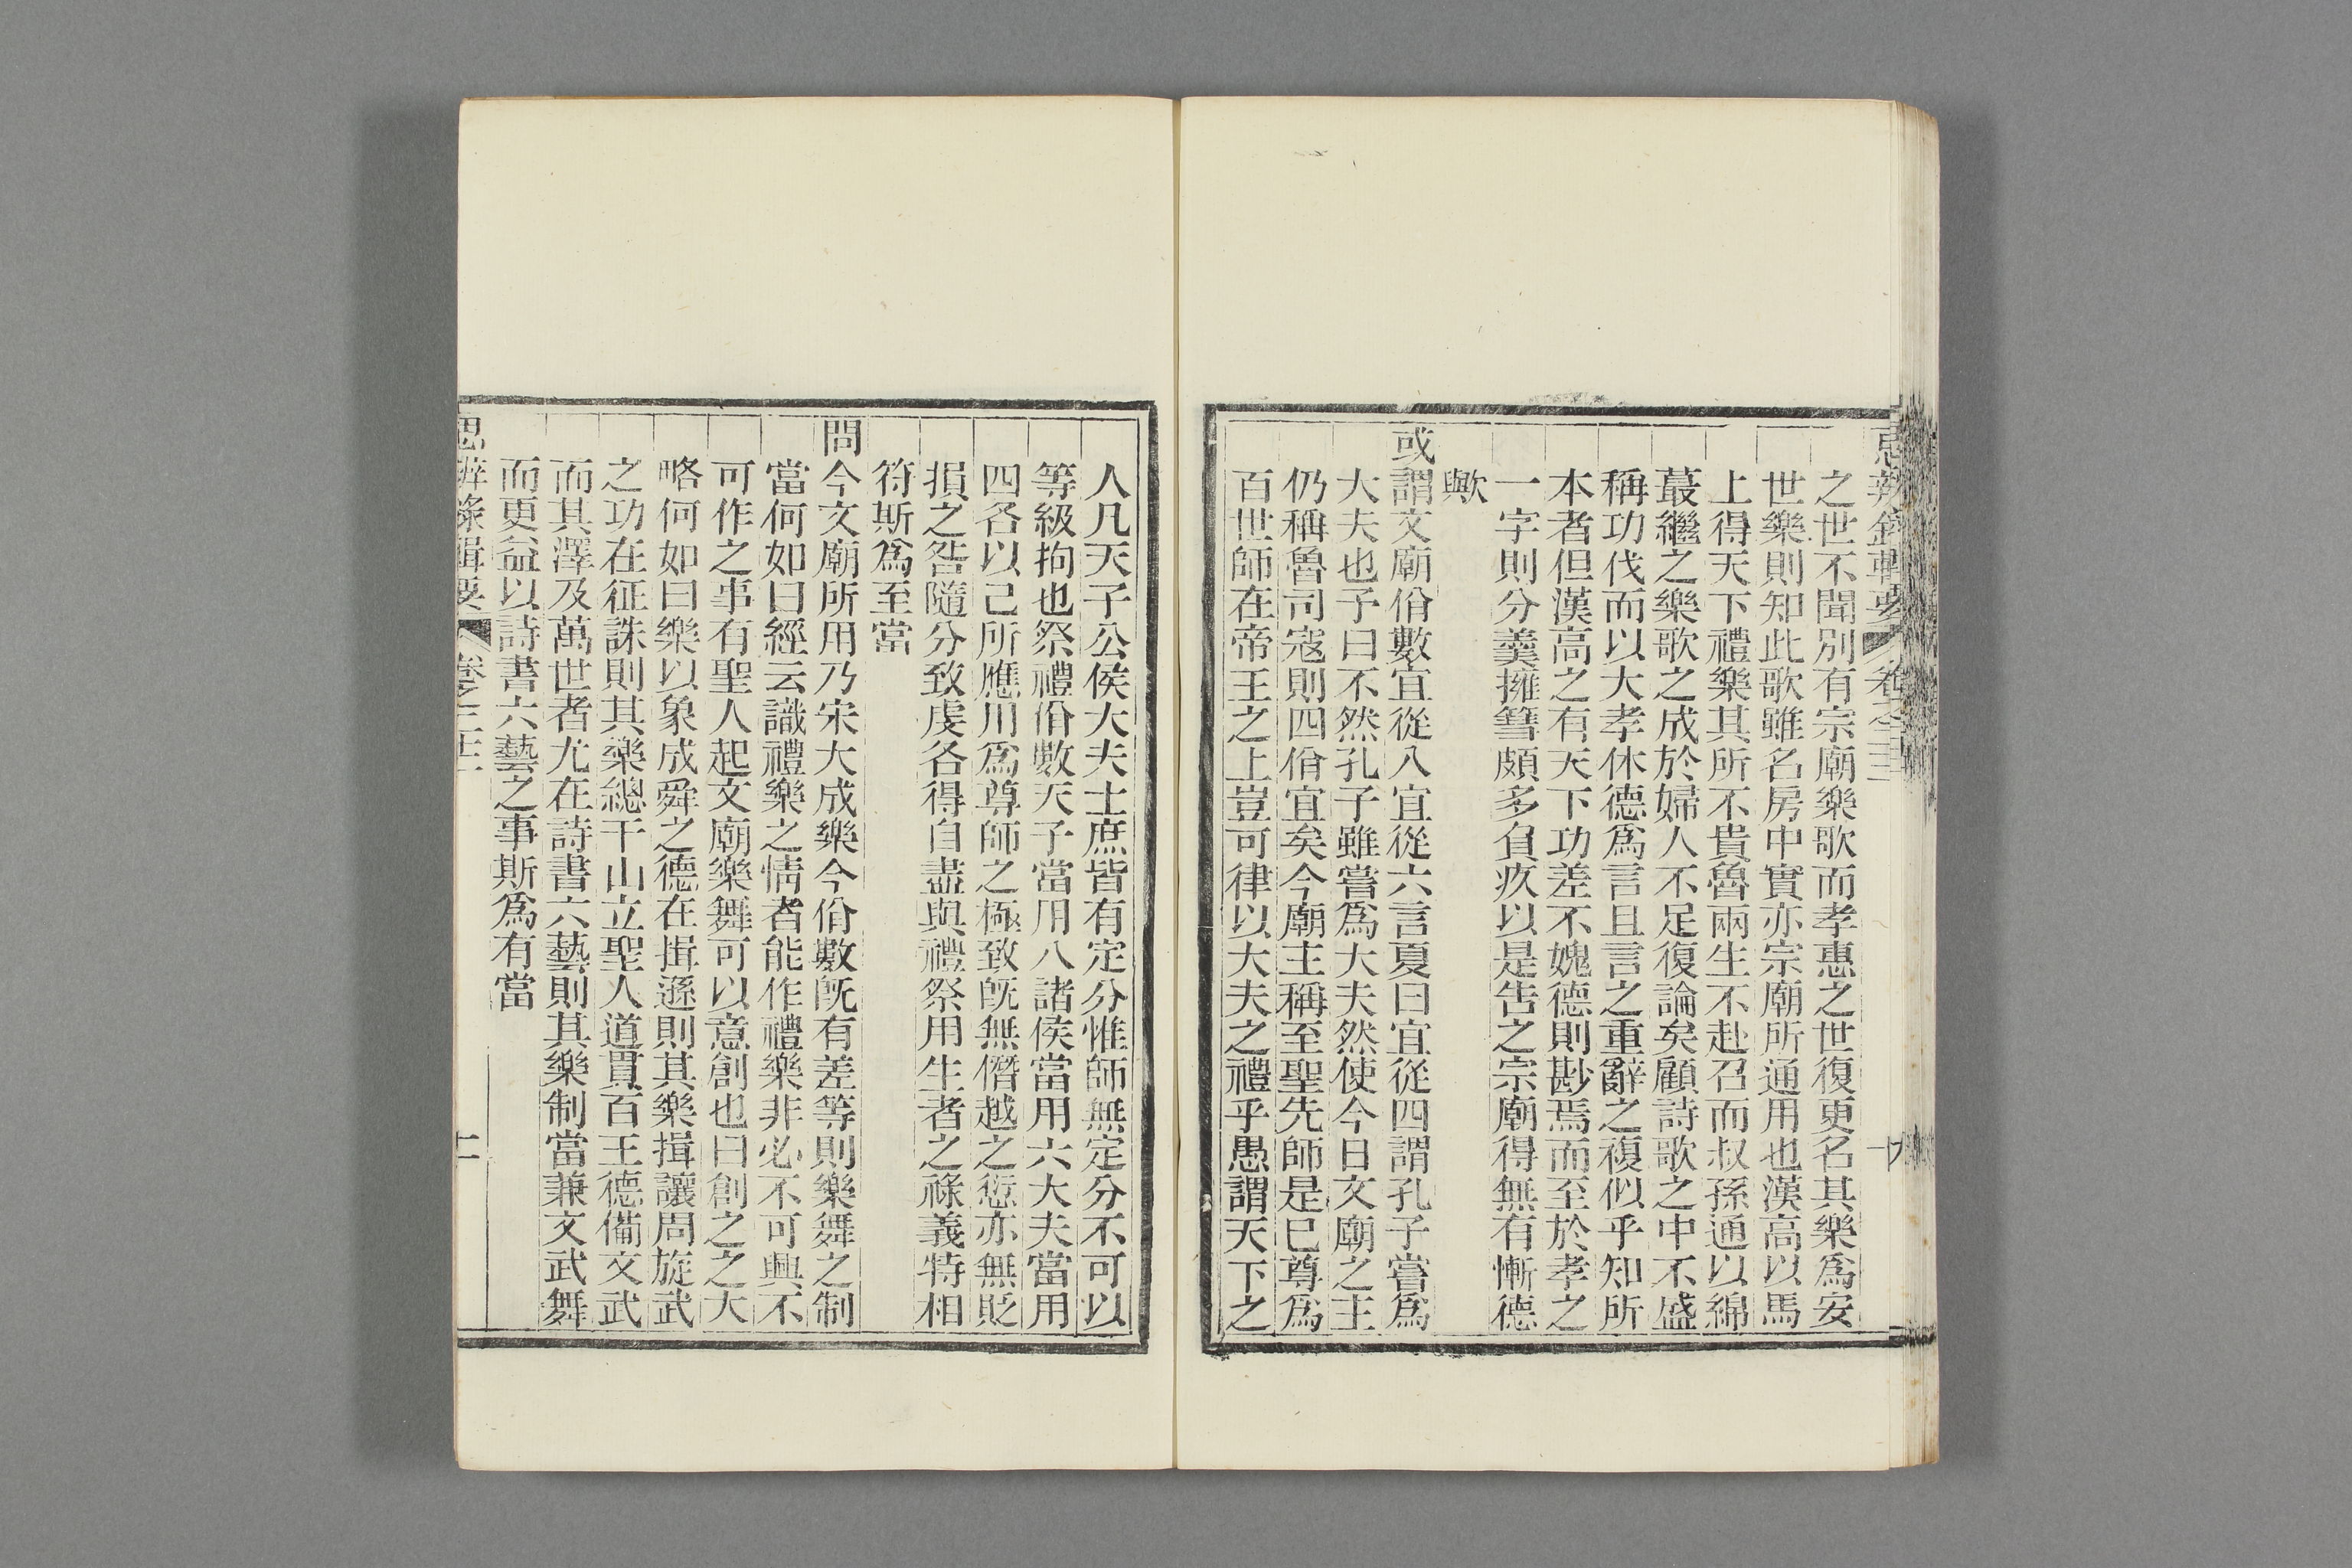 思辨錄輯要 卷之二十二 十
之世不聞別有宗廟樂歌而孝惠之世復更名其樂爲安
世樂則知此歌雖名房中實亦宗廟所通用也漢高以馬
上得天下禮樂其所不貴魯兩生不赴召而叔孫通以綿
蕞繼之樂歌之成於婦人不足復論矣顧詩歌之中不盛
稱功伐而以大孝休德爲言且言之重辭之複似乎知所
本者但漢高之有天下功差不媿德則尠焉而至於孝之
一字則分羹擁篲頗多負疚以是告之宗廟得無有慚德
歟
或謂文廟佾數宜從八宜從六言夏曰宜從四謂孔子嘗爲
大夫也予曰不然孔子雖嘗爲大夫然使今日文廟之主
仍稱魯司寇則四佾宜矣今廟主稱至聖先師是已尊爲
百世師在帝王之上豈可律以大夫之禮乎愚謂天下之
人凡天子公侯大夫士庶皆有定分惟師無定分不可以
等級拘也祭禮佾數天子當用八諸侯當用六大夫當用
四各以己所應用爲尊師之極致旣無僭越之愆亦無貶
損之咎隨分致虔各得自盡與禮祭用生者之祿義特相
符斯爲至當
問今文廟所用乃宋大成樂今佾數旣有差等則樂舞之制
當何如曰經云識禮樂之情者能作禮樂非必不可興不
可作之事有聖人起文廟樂舞可以意創也曰創之之大
略何如曰樂以象成舜之德在揖遜則其樂揖讓周旋武
之功在征誅則其樂總干山立聖人道貫百王德備文武
而其澤及萬世者尤在詩書六藝則其樂制當兼文武舞
而更益以詩書六藝之事斯爲有當
思辨錄輯要 卷之二十二